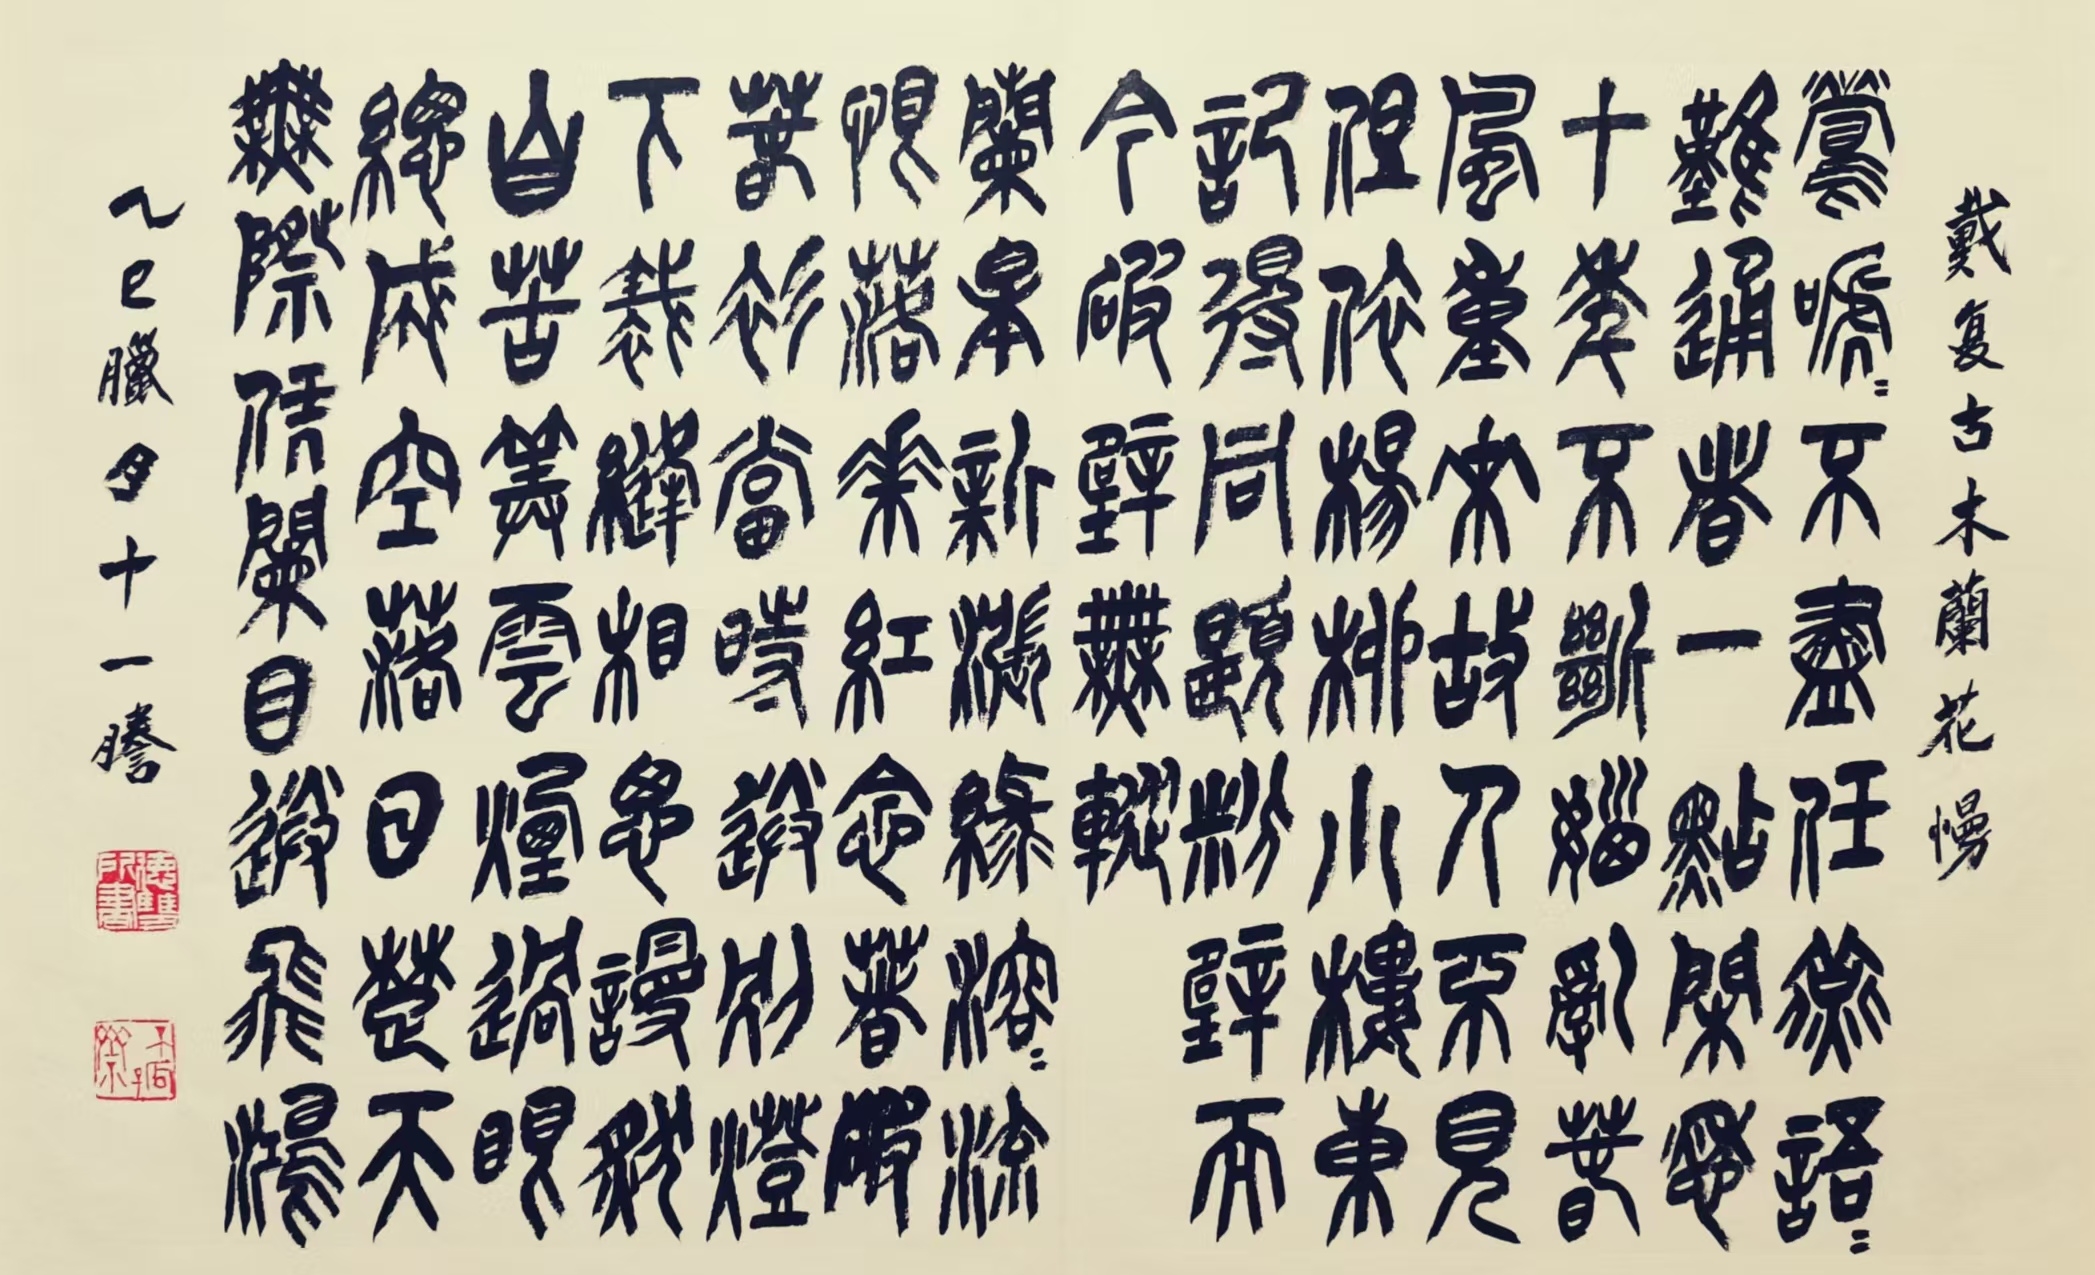 戴复古木蘭花慢
鶯啼〻不盡任燕語〻
難通者一點閑愁
十年不斷惱亂春
風重來故人不見
但依楊柳小樓東
記得同題粉壁而
今破壁無蹤
蘭皋新漲綠溶〻流
恨落花紅念著破
春衫當時送別燈
下裁縫相思謾然
自苦算雲煙過眼
總成空落日楚天
無際凭闌目送飛鴻
乙巳臘月十一謄